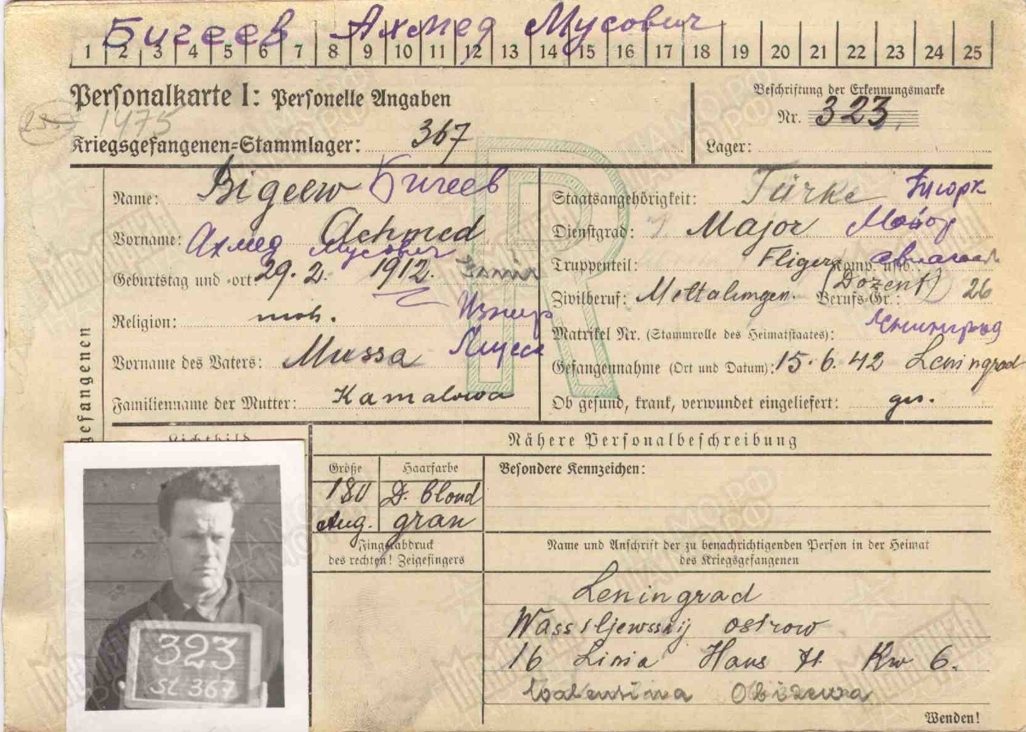 Бигеев Ахмед Мусович
1 2 3 4 5 6 7 8 9 10 11 12 13 14 15 16 17 18 19 20 21 22 23 24 25
Personalkarte I: Personelle Angaben
1475
Kriegsgefangenen-Stammlager: 367
Beschriftung der Erkennungsmarke
Nr. 323
Lager:
Name: Bigeew Бигеев
Vorname: Achmed
Ахмед Мусович
Geburtstag und -ort: 29.2. 1912.
Religion: moh.
Vorname des Vaters: Mussa Мусса
Familienname der Mutter: Kamalowa
Staatsangehörigkeit: Türke
Dienstgrad: Major Майор
Truppenteil: Fliger Komp. usw.:
Zivilberuf: (Dozent) Berufs-Gr.: 26
Matrikel Nr. (Stammrolle des Heimatstaates):
Ленинград
Gefangennahme (Ort und Datum): 15.6.42 Leningrad
Ob gesund, krank, verwundet eingeliefert: ges.
gefangenen
Lichtbild
323
St 367
Nähere Personalbeschreibung
Größe Haarfarbe
180 D. blond
Aug. grau
Fingerabdruck
des rechten! Zeigefingers
Besondere Kennzeichen:
Name und Anschrift der zu benachrichtigenden Person in der Heimat
des Kriegsgefangenen
Leningrad
Wasssljewsskij ostrow
16 Linia Haus Kw 6.
Walentina
Wenden!
R